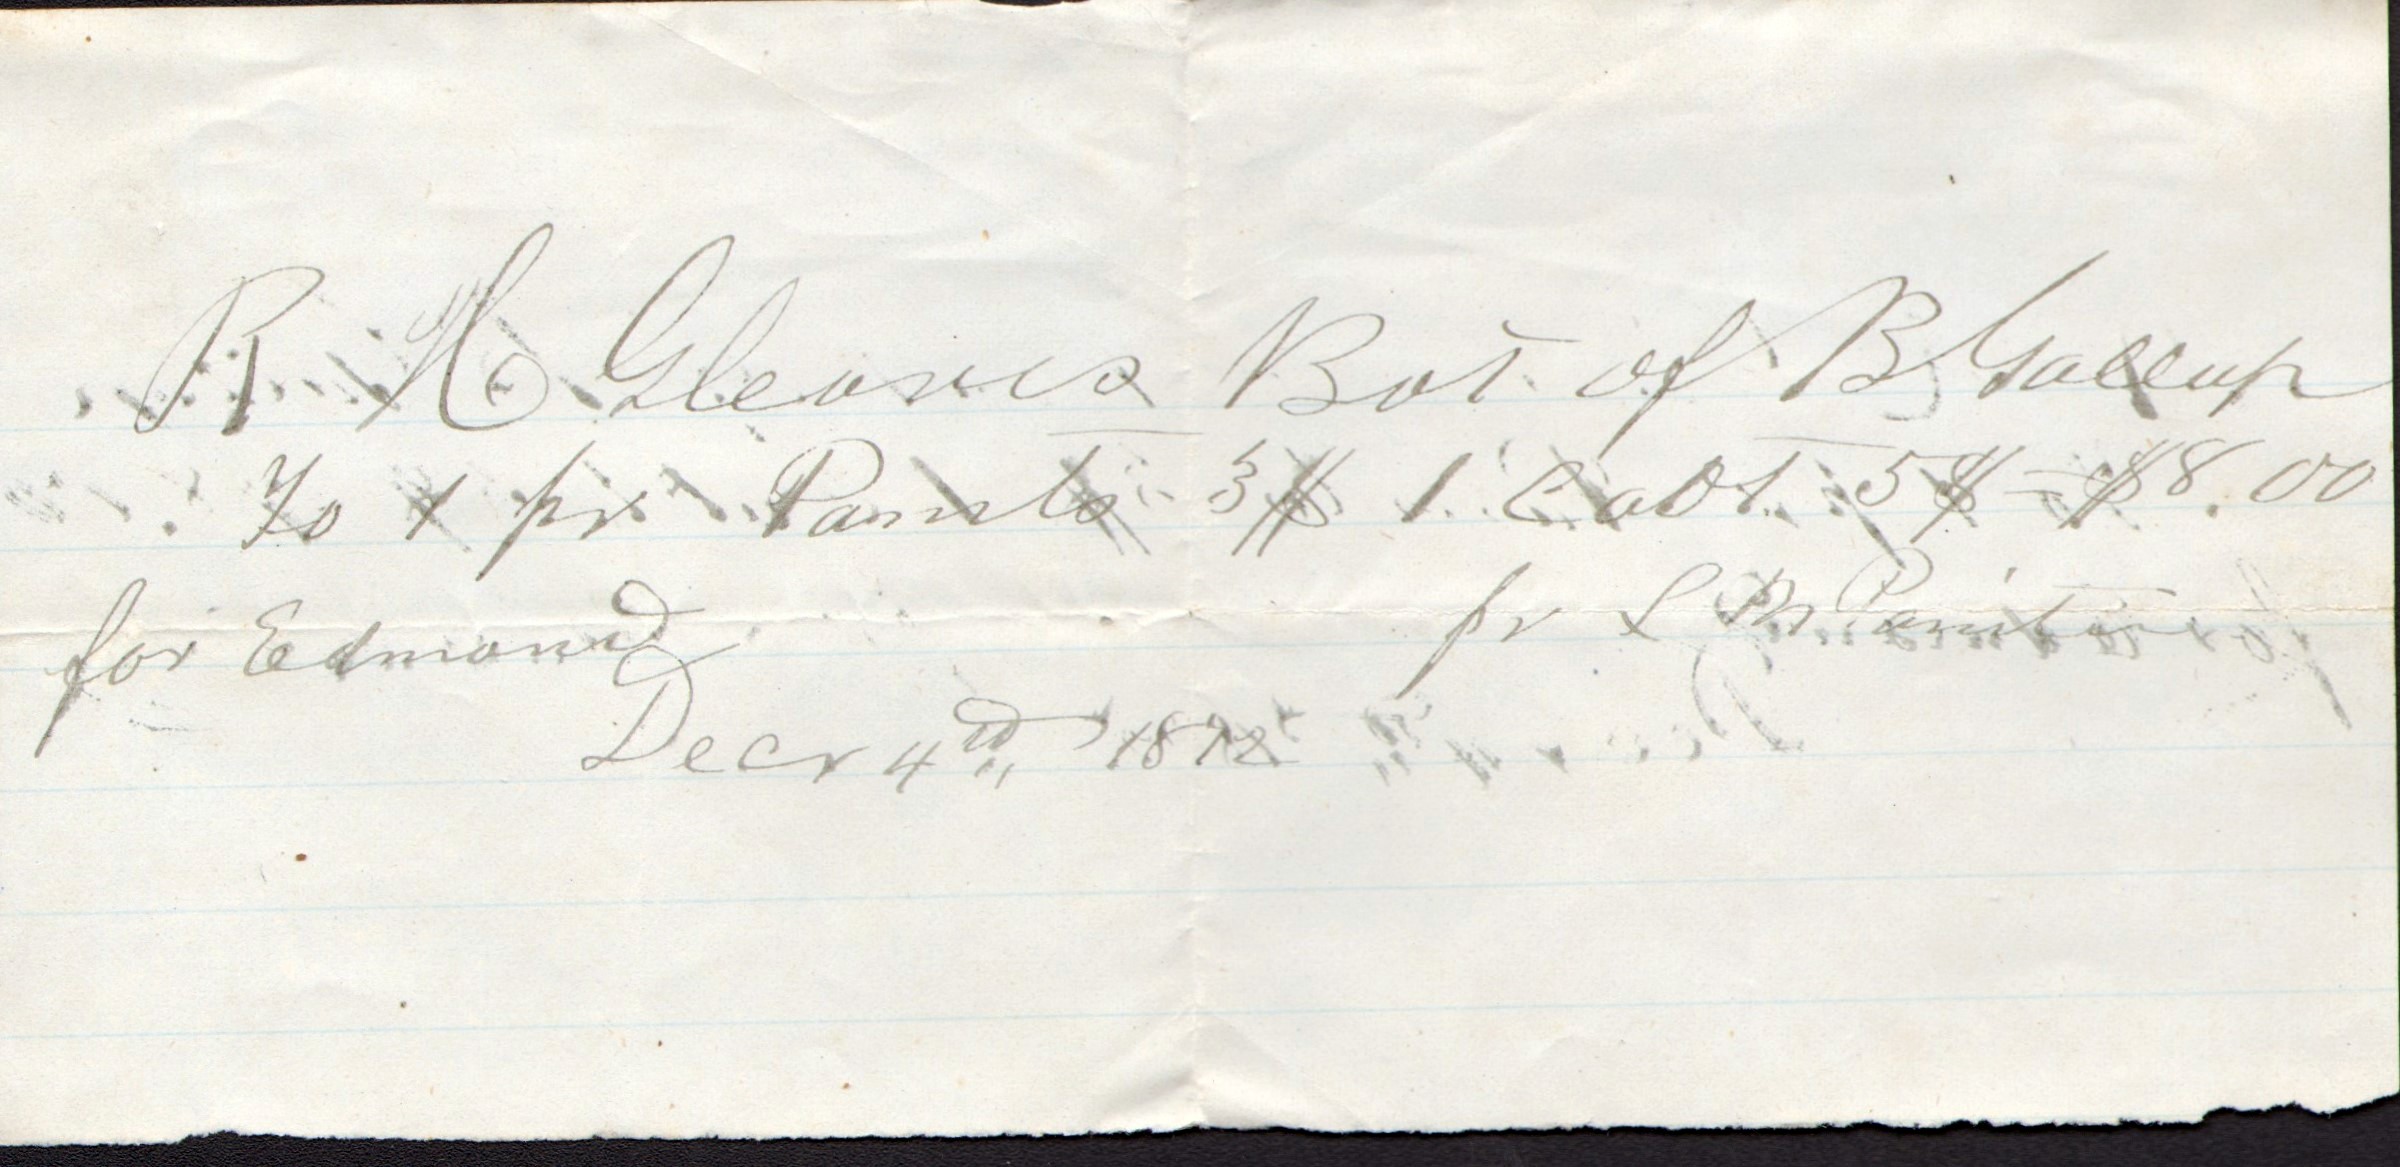 R H Gleaves Bot of B Gallup
To 1 pr Pants 3$ 1 Coat 5$ - $8.00
for Edmond pr L M
Decr 4th 1872